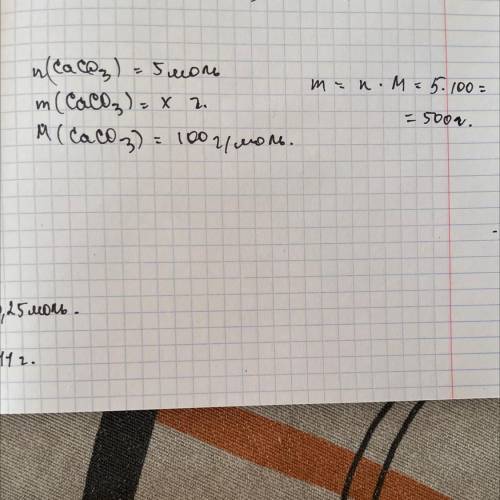 n(CaCO3) = 5 моль
m(CaCO3) = x г.
M(CaCO3) = 100 г/моль.
m = n · M = 5·100 =
= 500 г.
,25 моль.
11 г.